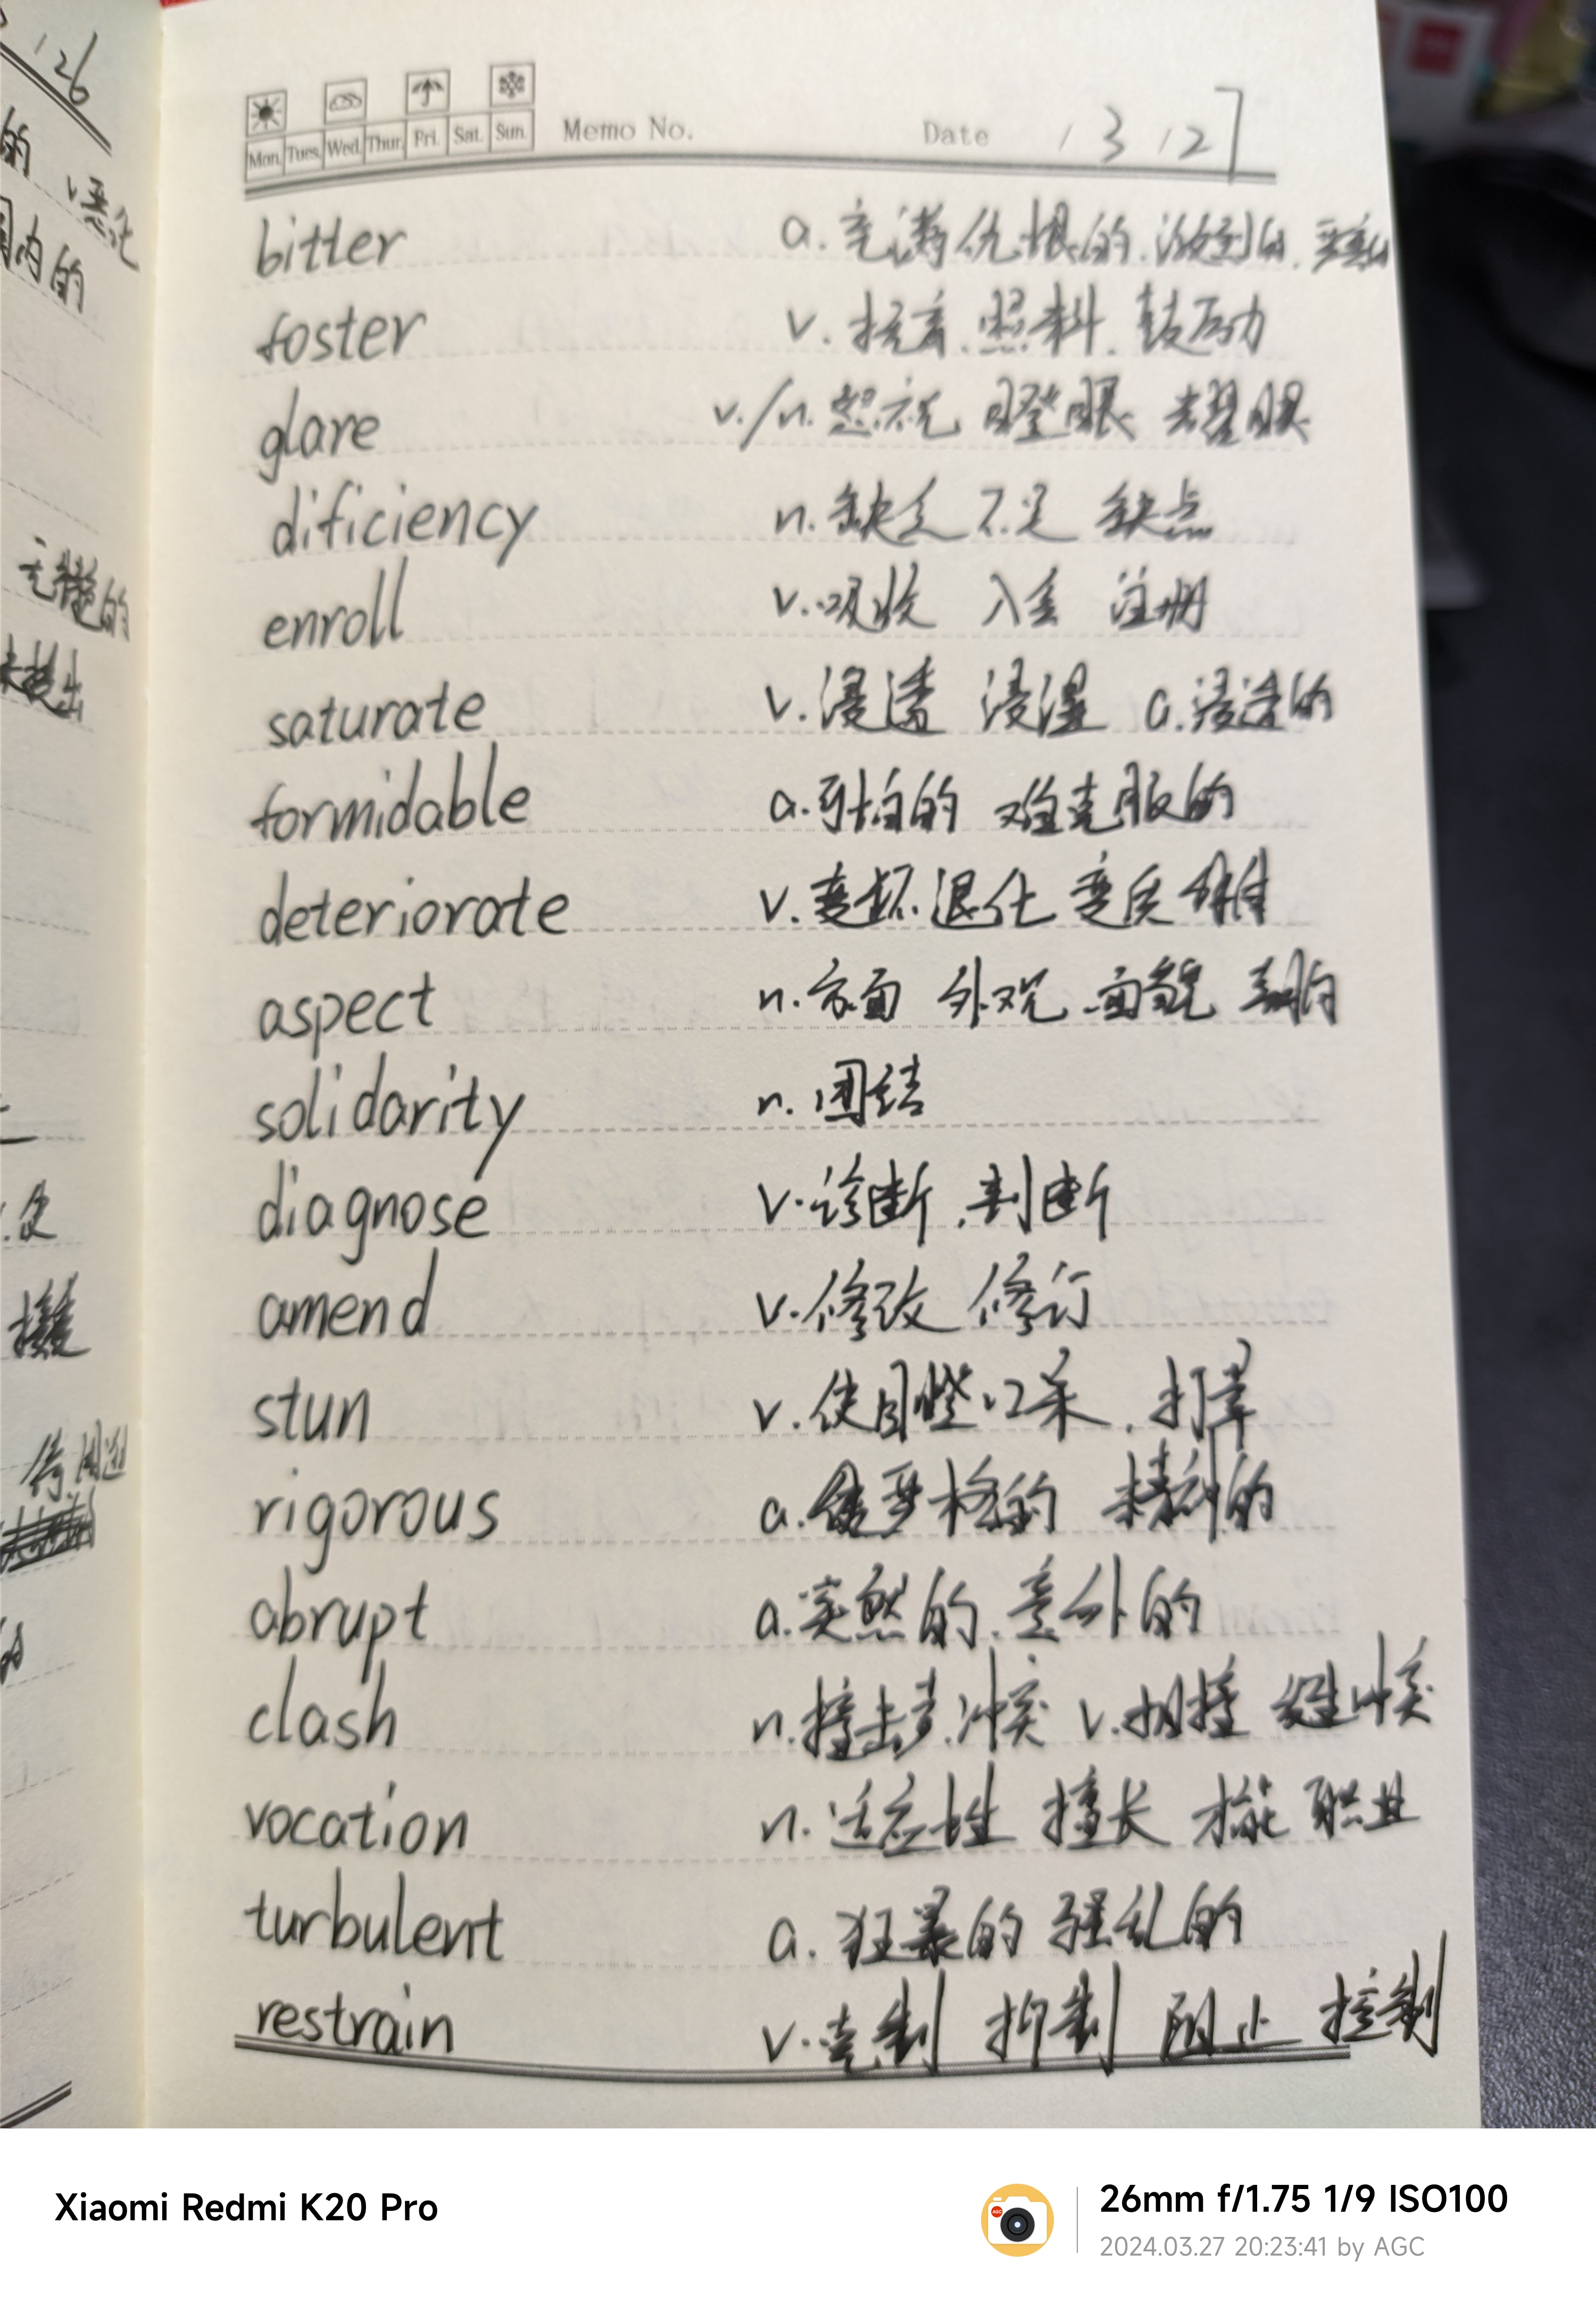 126
的 v.恶化
国内的
Mon. Tues. Wed. Thur. Fri. Sat. Sun. Memo No. Date / 3 / 27
bitter a.充满仇恨的.激烈的.
foster v.抚育.照料.鼓励
glare v./n.怒视 瞪眼 耀眼
dificiency n.缺乏 不足 缺点
enroll v.吸收 入会 注册
saturate v.浸透 浸湿 a.浸透的
formidable a.可怕的 难克服的
deteriorate v.变坏.退化 变质
aspect n.方面 外观.面貌
solidarity n.团结
diagnose v.诊断.判断
amend v.修改 修订
stun v.使目瞪口呆.打晕
rigorous a.严格的 的
abrupt a.突然的.意外的
clash n.撞击声.冲突 v.相撞 冲突
vocation n.适应性 擅长 才能 职业
turbulent a.狂暴的 骚乱的
restrain v.克制 抑制 阻止 控制
Xiaomi Redmi K20 Pro
26mm f/1.75 1/9 ISO100
2024.03.27 20:23:41 by AGC